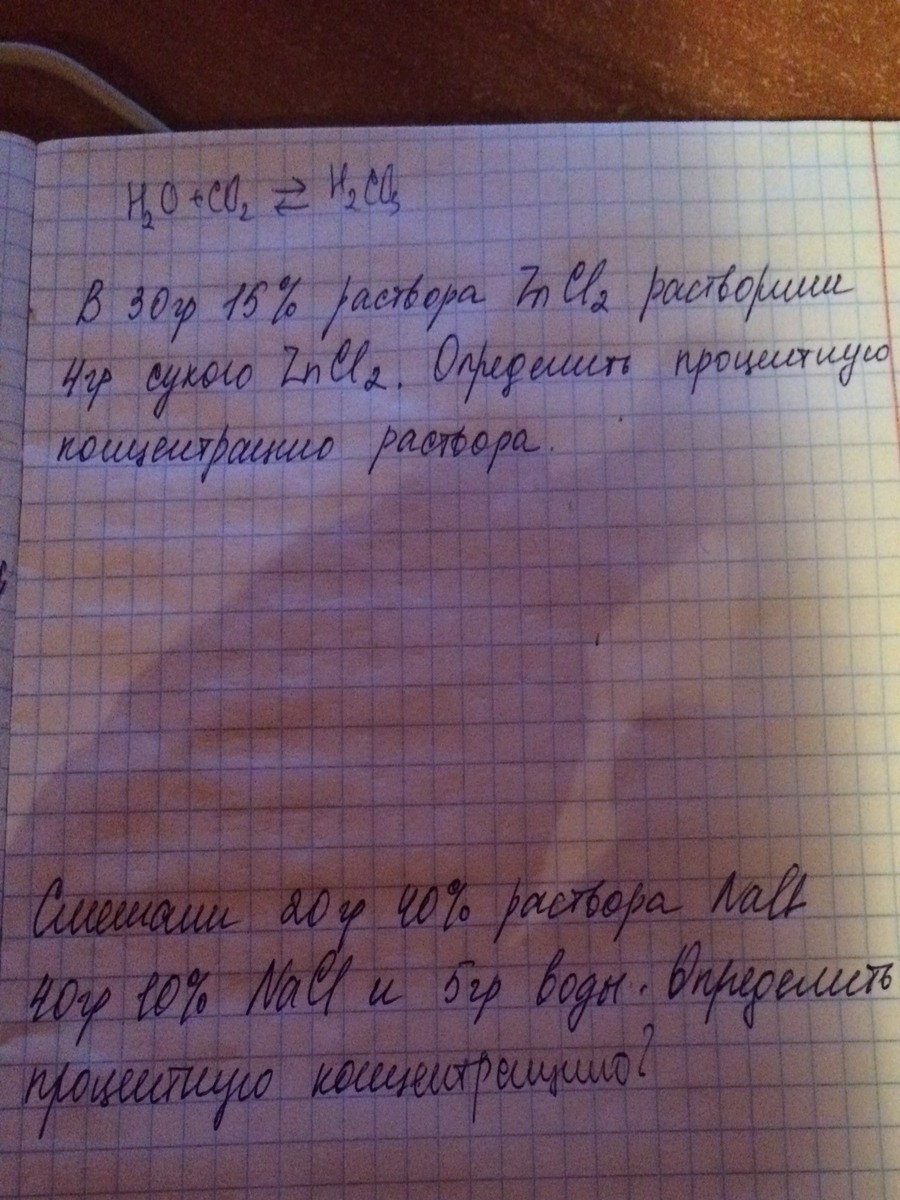 H₂O + CO₂ ⇄ H₂CO₃
В 30гр 15% раствора ZnCl₂ растворили
4гр сухого ZnCl₂. Определить процентную
концентрацию раствора.
Смешали 20гр 40% раствора NaCl
40гр 10% NaCl и 5гр воды. Определить
процентную концентрацию?